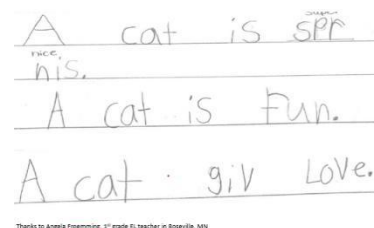 super
A cat is spr
nice
nis.
A cat is Fun.
A cat . giv Love.
Thanks to Angela Froemming, 1st grade EL teacher in Roseville, MN